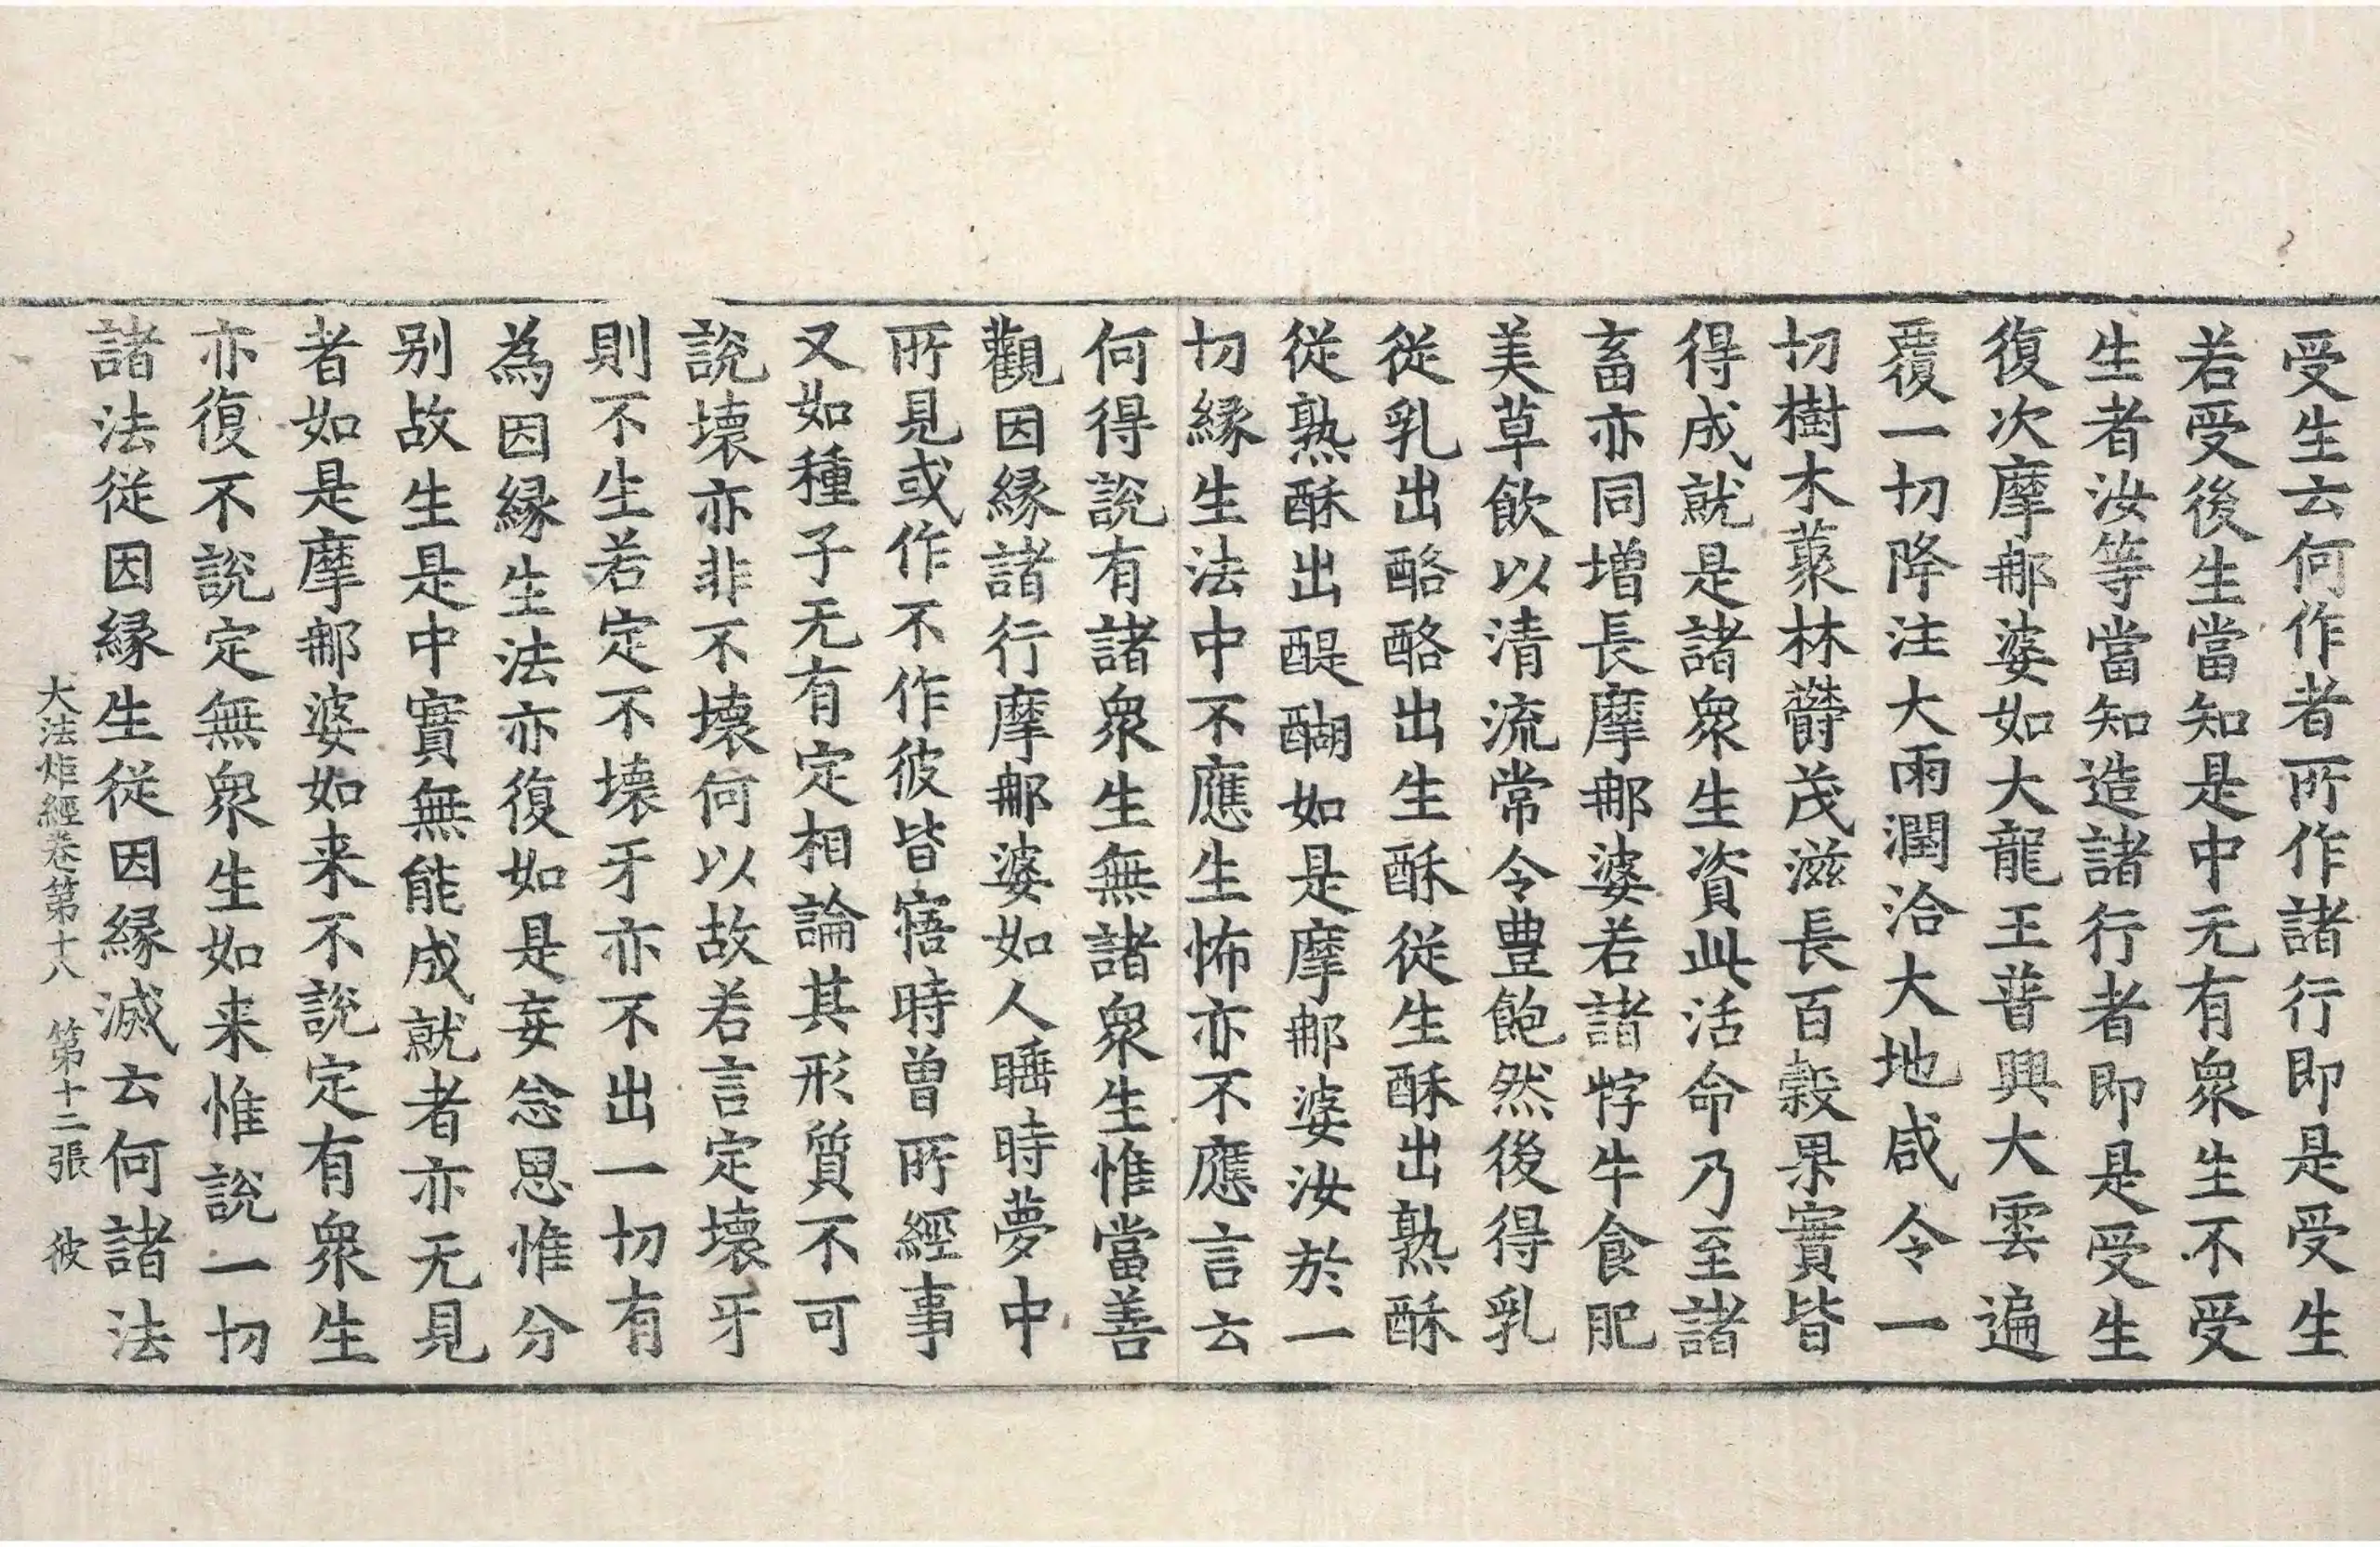 受生云何作者所作諸行即是受生
若受後生當知是中无有衆生不受
生者汝等當知造諸行者即是受生
復次摩那婆如大龍王普興大雲遍
覆一切降注大雨潤洽大地咸令一
切樹木藂林欝茂滋長百穀果實皆
得成就是諸衆生資此活命乃至諸
畜亦同增長摩那婆若諸牸牛食肥
美草飲以清流常令豊飽然後得乳
從乳出酪酪出生酥從生酥出熟酥
從熟酥出醍醐如是摩那婆汝於一
切緣生法中不應生怖亦不應言云
何得説有諸衆生無諸衆生惟當善
觀因緣諸行摩那婆如人睡時夢中
所見或作不作彼皆寤時曽所經事
又如種子无有定相論其形質不可
説壞亦非不壞何以故若言定壞牙
則不生若定不壞牙亦不出一切有
為因緣生法亦復如是妄念思惟分
别故生是中實無能成就者亦无見
者如是摩那婆如来不説定有衆生
亦復不説定無衆生如来惟説一切
諸法從因緣生從因緣滅云何諸法
大法炬經卷第十八　第十二張　彼